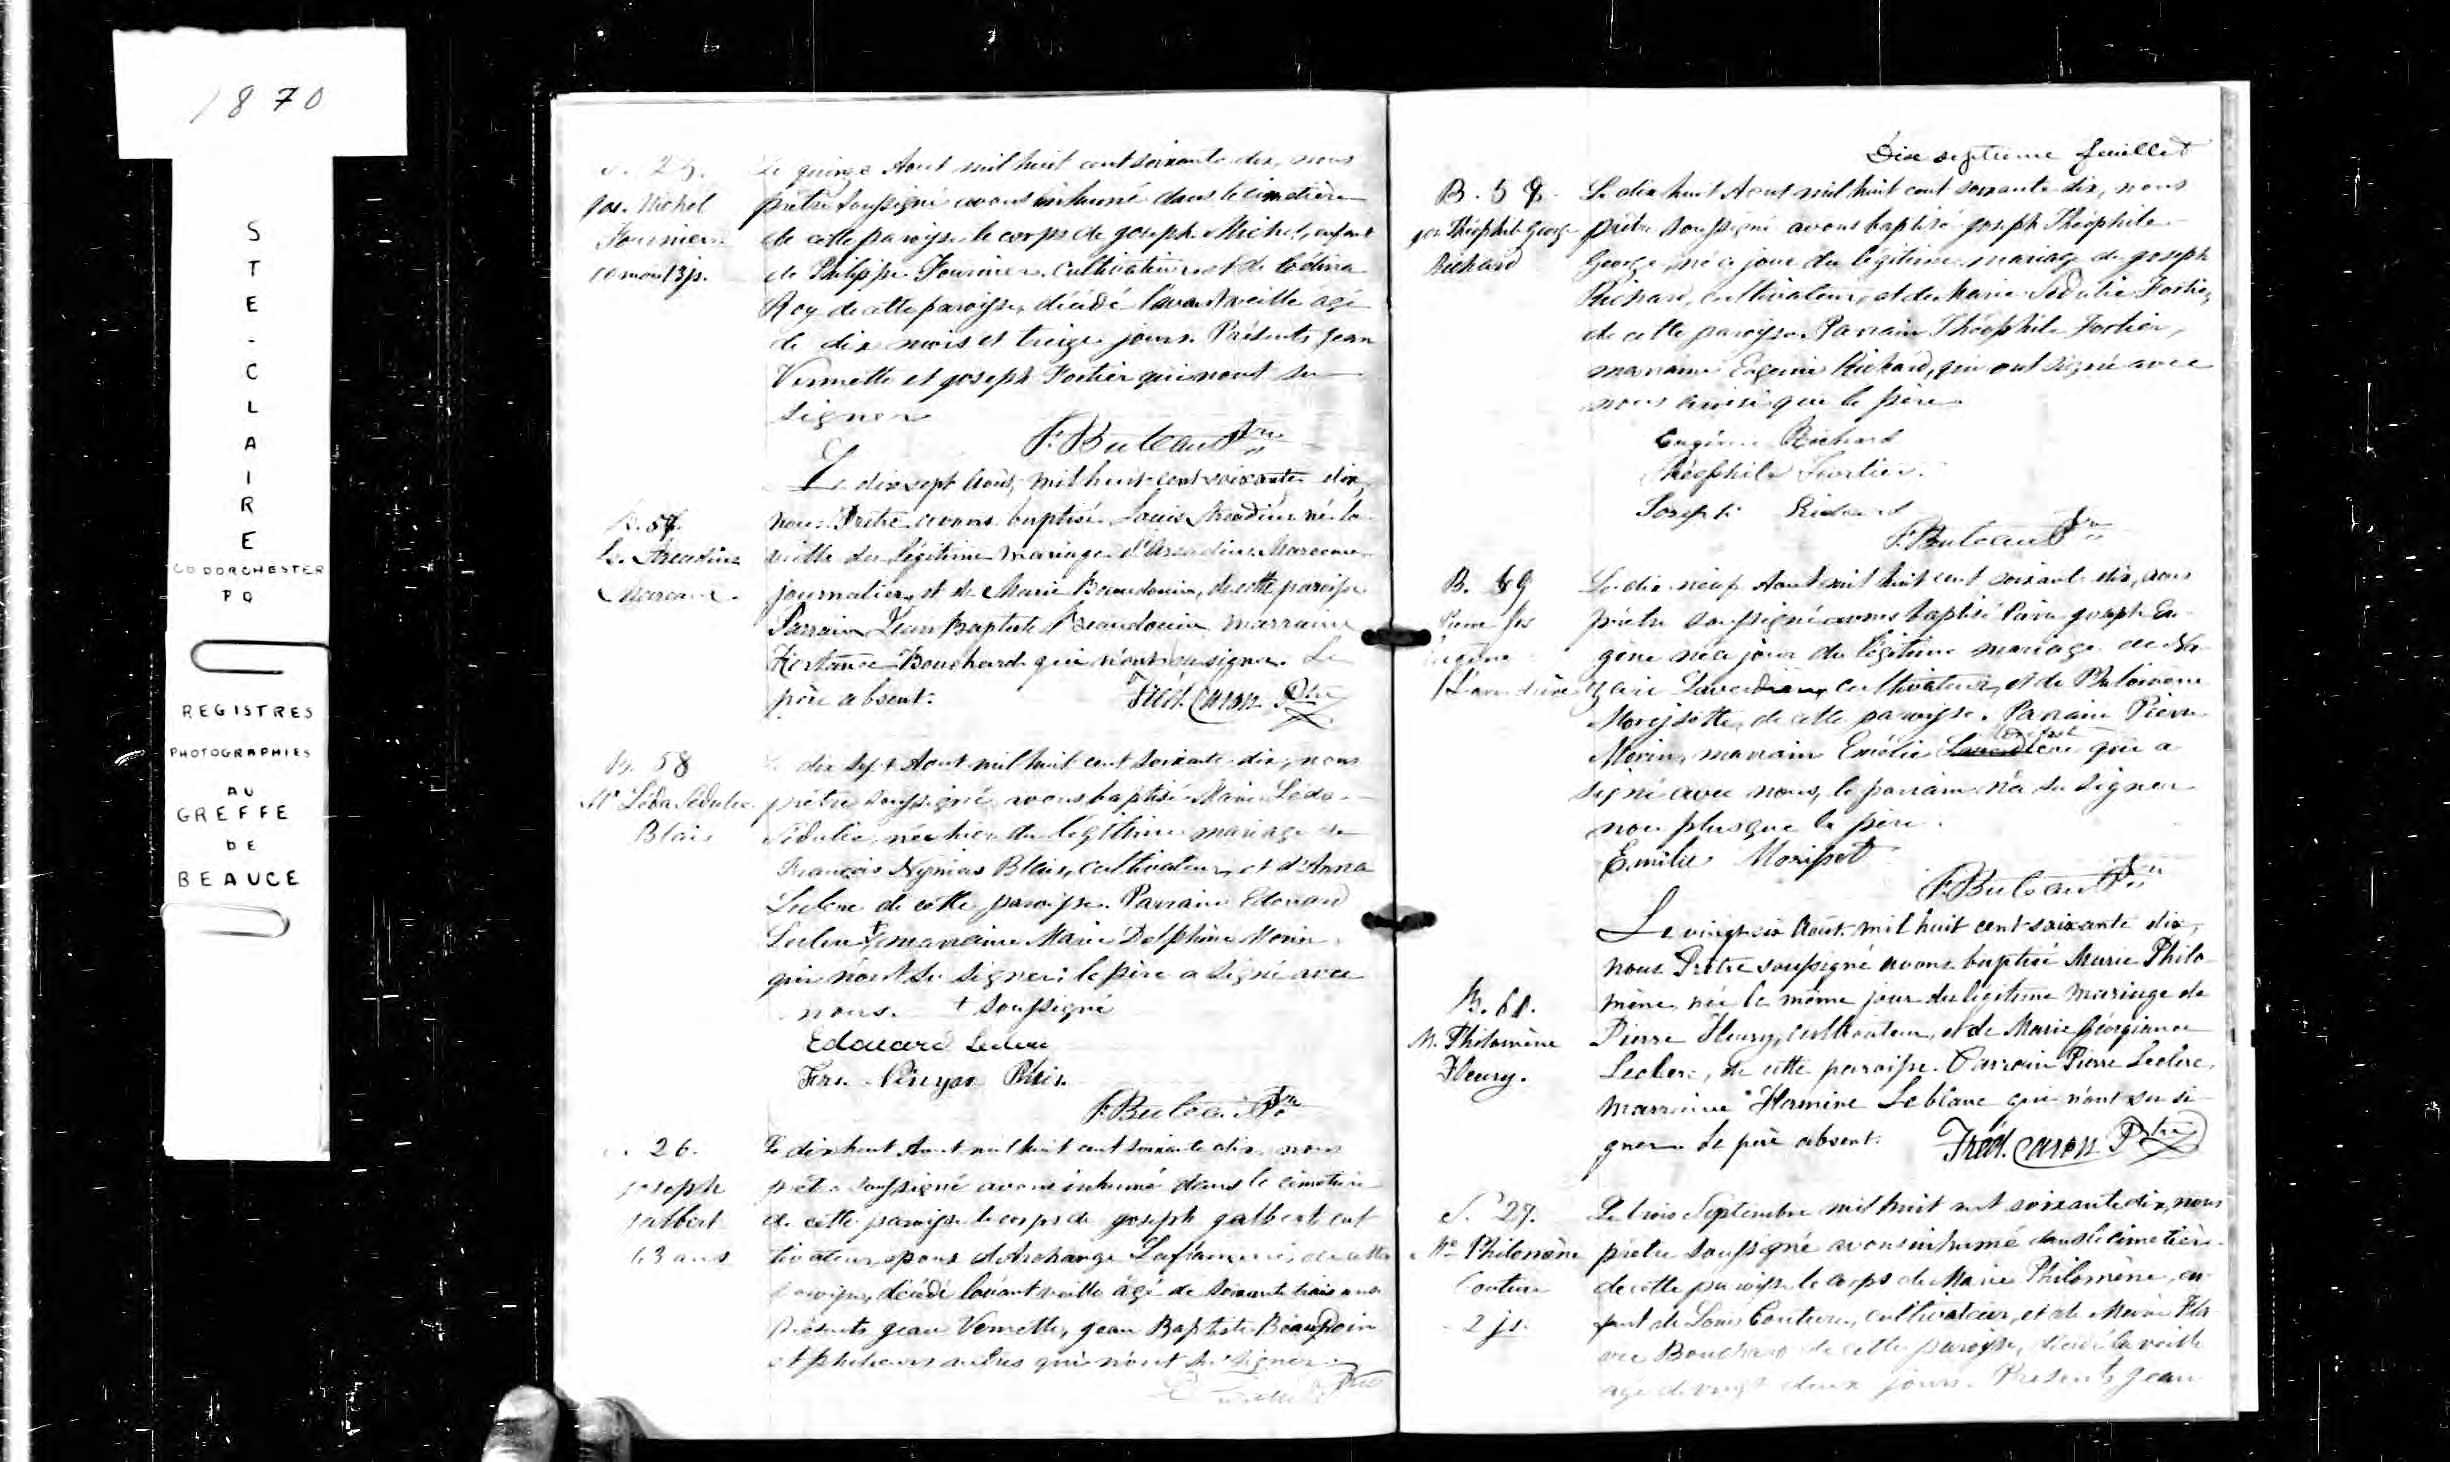 1870
STE-CLAIRE
CO DORCHESTER
P Q
REGISTRES
PHOTOGRAPHIES
AU
GREFFE
DE
BEAUCE
S. 25.
Jos. Michel
Fournier
10 mois 13 js.
Le quinze Aout mil huit cent soixante dix, nous
prêtre soussigné avons inhumé dans le cimetière
de cette paroisse le corps de Joseph Michel, enfant
de Philippe Fournier, cultivateur et de
Roy de cette paroisse, décédé l'avant veille agé
de dix mois et treize jours. Présents Jean
Vermette et Joseph Fortier qui n'ont su
signer
F. Buteau Ptre
B. 57.
Ls. Arcadius
Marceau
Le dix sept Août, mil huit cent soixante dix,
nous Prêtre avons baptisé Louis Arcadius né la
veille du légitime mariage d'Arcadius Marceau
journalier, et de Marie Beaudouin, de cette paroisse
Parrain Jean Baptiste Beaudouin marraine
Hortance Bouchard qui n'ont su signer. Le
père absent. Fréd. Caron Ptre
B. 58
Me Léda Sédulie
Blais
Le dix sept Aout mil huit cent soixante dix, nous
prêtre soussigné avons baptisé Marie Léda
Sédulie, née hier du légitime mariage de
François Nymias Blais, cultivateur, et d'Anna
Leclerc de cette paroisse. Parrain Edouard
Leclerc + marraine Marie Delphine Morin
qui n'ont su signer: le père a signé avec
nous. + soussigné
Edouard Leclerc
Frs. Blais
F. Buteau Ptre
S. 26.
Joseph
Jalbert
63 ans
Le dix huit Aout mil huit cent soixante dix nous
prêtre soussigné avons inhumé dans le cimetière
de cette paroisse le corps de Joseph Jalbert cul
tivateur, epoux d'Archange Laflamme, de cette
paroisse, décédé l'avant veille âgé de soixante trois ans
Présents Jean Vermette, Jean Baptiste Beaudoin
et plusieurs autres qui n'ont su signer
Ptre
Dix septieme feuillet
B. 59
Jos Théophile George
Richard
Le dix huit Aout mil huit cent soixante dix, nous
prêtre soussigné avons baptisé Joseph Théophile
George, né ce jour du légitime mariage de Joseph
Richard, cultivateur, et de Marie Sédulie Fortier,
de cette paroisse. Parrain Théophile Fortier,
marraine Eugenie Richard, qui ont signé avec
nous ainsi que le père.
Eugénie Richard
Théophile Fortier
Joseph Richard
F. Buteau Ptre
B. 59
Pierre Jos
Eugène
Laverdière
Le dix neuf Aout mil huit cent soixante dix, nous
prêtre soussigné avons baptisé Pierre Joseph Eu-
gène né ce jour du légitime mariage de Na
zaire Laverdière, cultivateur, et de Philomène
Morissette, de cette paroisse. Parrain Pierre
Morin, marraine Emélie Laverdière qui a
signé avec nous, le parrain n'a su signer
non plus que le père.
Emilie Morisset
F. Buteau Ptre
B. 60.
M. Philomène
Fleury.
Le vingt six Août mil huit cent soixante dix,
nous Prêtre soussigné avons baptisé Marie Philo
mène née le même jour du légitime mariage de
Pierre Fleury, cultivateur, et de Marie Géorgianna
Leclerc, de cette paroisse. Parrain Pierre Leclerc,
marraine Hermine Leblanc qui n'ont su si
gner. Le père absent. Fréd. Caron Ptre
S. 27.
Me Philomène
Couture
2 js.
Le trois Septembre mil huit cent soixante dix, nous
prêtre soussigné avons inhumé dans le cimetière
de cette paroisse le corps de Marie Philomène, en
fant de Louis Couture, cultivateur, et de Marie Fla
vie Bouchard de cette paroisse, décédé la veille
agé de vingt deux jours. Présents Jean